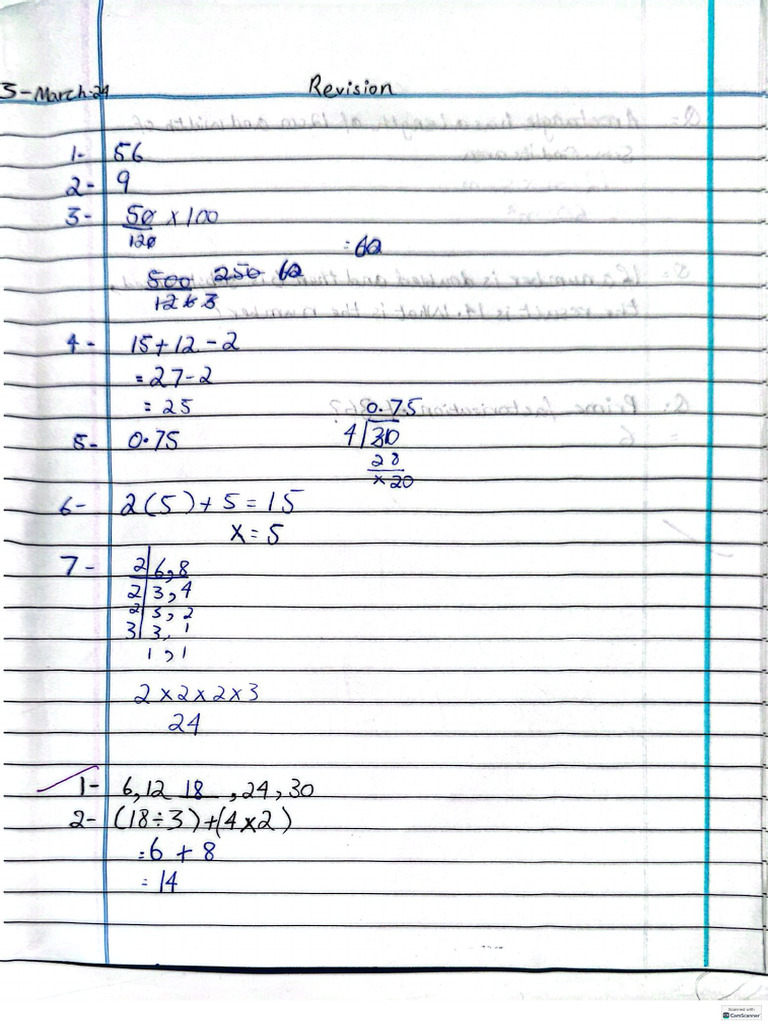 5-March-24
Revision
1- 56
2- 9
3- 50 x 100
120
= 60
500 250 62
12 6 3
4- 15+12-2
= 27-2
= 25
0.75
5- 0.75 4 30
28
x 20
6- 2(5)+5=15
x=5
7- 2 6,8
2 3,4
2 3,2
3 3,1
1,1
2x2x2x3
24
1- 6,12 18 ,24,30
2- (18÷3)+(4x2)
=6 + 8
= 14
Scanned with
CamScanner